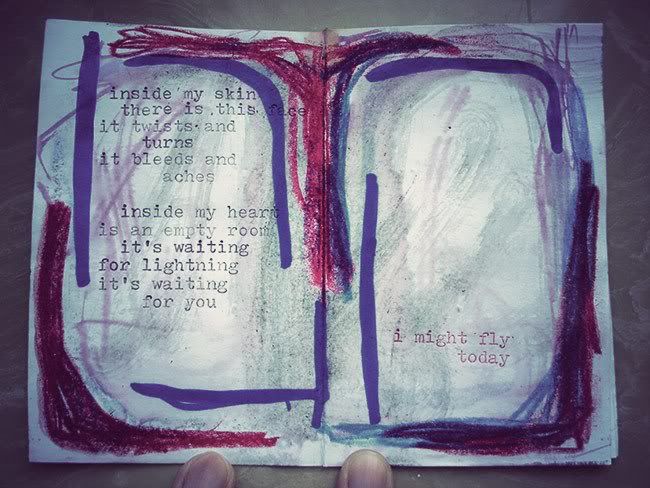 inside my skin
there is this face
it twists and
turns
it bleeds and
aches
inside my heart
is an empty room
it's waiting
for lightning
it's waiting
for you
i might fly
today